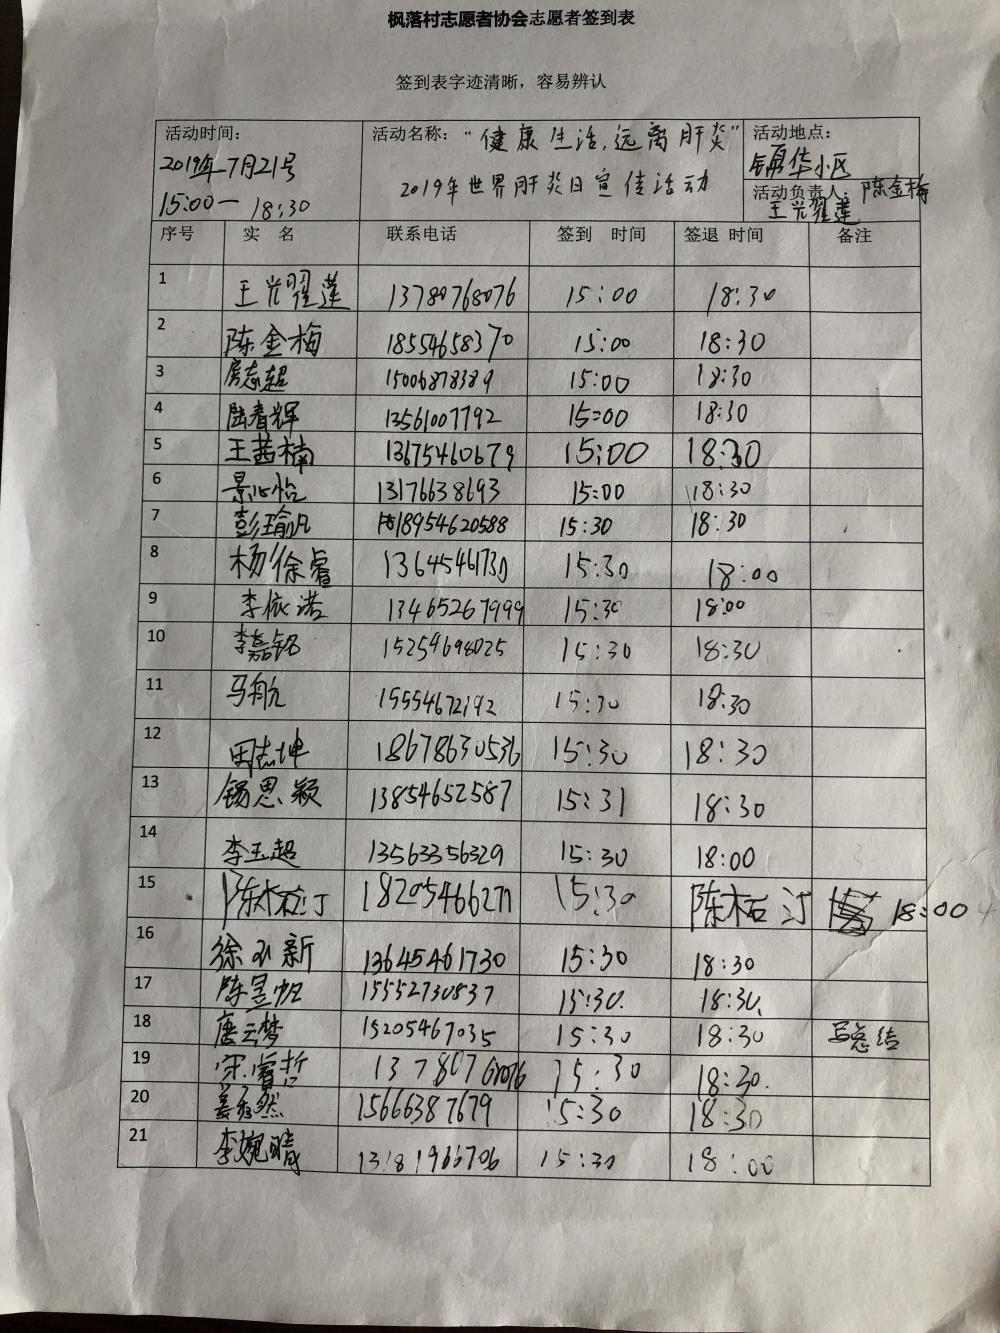 枫落村志愿者协会志愿者签到表
签到表字迹清晰，容易辨认
活动时间： 2019年7月21号 15:00一 18:30
活动名称：“健康生活,远离肝炎” 2019年世界肝炎日宣传活动
活动地点： 锦华小区
活动负责人： 陈金梅 王光翟莲
序号 实 名 联系电话 签到 时间 签退 时间 备注
1 王光翟莲 13780768076 15:00 18:30
2 陈金梅 18554658370 15:00 18:30
3 房志超 15006878389 15:00 18:30
4 陆春辉 13561007792 15:00 18:30
5 王茜楠 13675460679 15:00 18:30
6 景心怡 13176638693 15:00 18:30
7 彭瑜凡 18954620588 15:30 18:30
8 杨徐睿 13645461730 15:30 18:00
9 李依诺 13465267999 15:30 18:00
10 李嘉铭 15254698025 15:30 18:30
11 马航 15554672192 15:30 18:30
12 田志坤 18678630536 15:30 18:30
13 杨思颖 13854652587 15:31 18:30
14 李玉超 13563356329 15:30 18:00
15 陈柘汀 18205466271 15:30 陈柘汀 18:00
16 徐 新 13645461730 15:30 18:30
17 陈昱帆 15552730837 15:30. 18:30.
18 唐云梦 15205467035 15:30 18:30 写总结
19 宋睿哲 137807 15:30 18:30.
20 姜 然 15666387679 15:30 18:30
21 李婉晴 13181966706 15:30 18:00